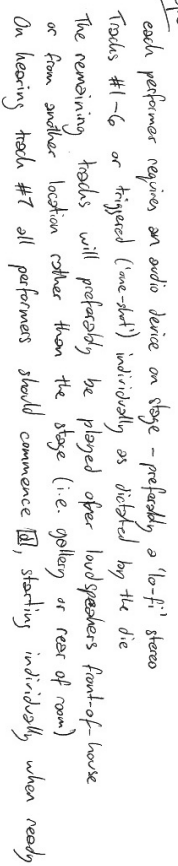 each performer requires an audio device on stage - preferably a 'lo-fi' stereo
Tracks #1-6 or triggered ('one-shot') individually as dictated by the die
The remaining tracks will preferably be played over loudspeakers front-of-house
or from another location rather than the stage (i.e. gallery or rear of room)
On hearing track #7 all performers should commence d, starting individually when ready